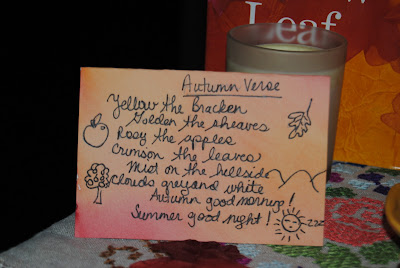 Leaf
Autumn Verse
Yellow the Bracken
Golden the sheaves
Rosy the apples
Crimson the leaves
Mist on the hillside
Clouds grey and white
Autumn good morning!
Summer good night!
zzz